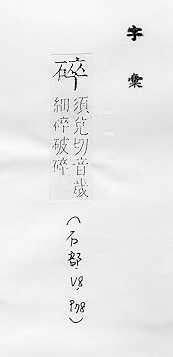 字彙
碎
須兌切音歲
細碎破碎
(石部,V8,P78)